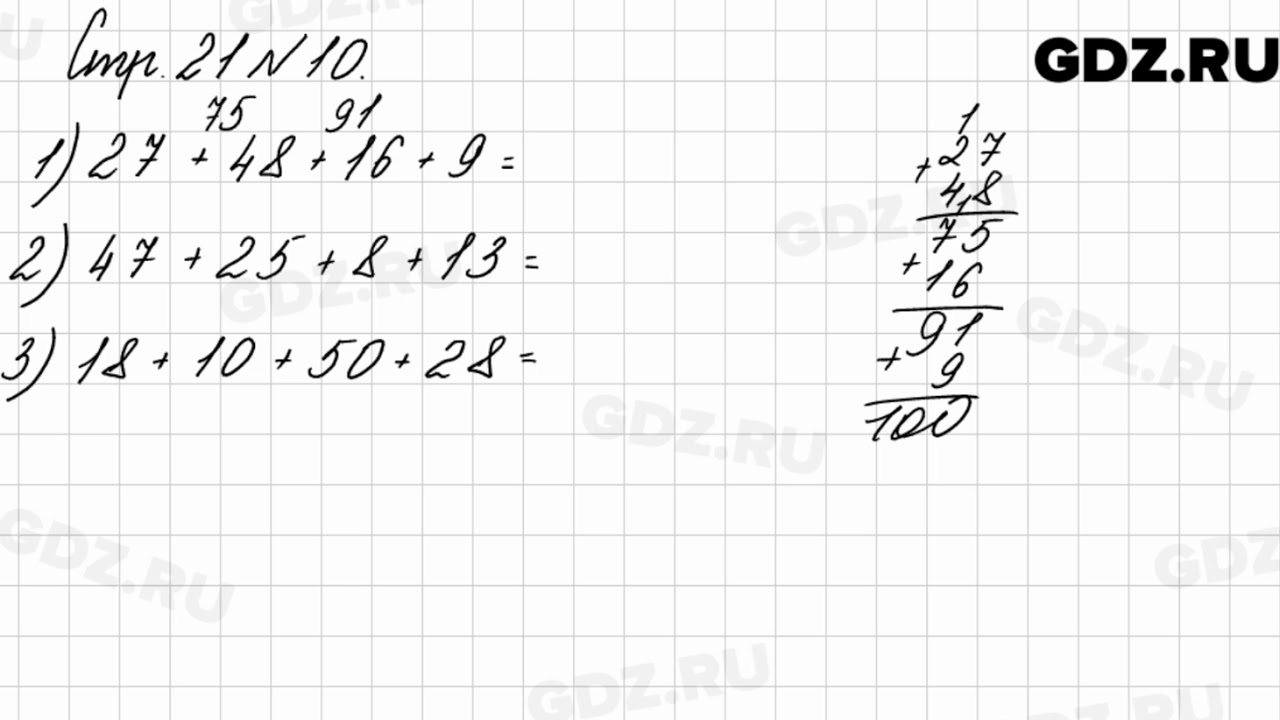 GDZ.RU
Стр. 21 N 10.
75 91
1) 27 + 48 + 16 + 9 =
2) 47 + 25 + 8 + 13 =
3) 18 + 10 + 50 + 28 =
1
+ 27
48
1
75
+ 16
91
+ 9
100
GDZ.RU
GDZ.RU
GDZ.RU
GDZ.RU
GDZ.RU
GDZ.RU
GDZ.RU